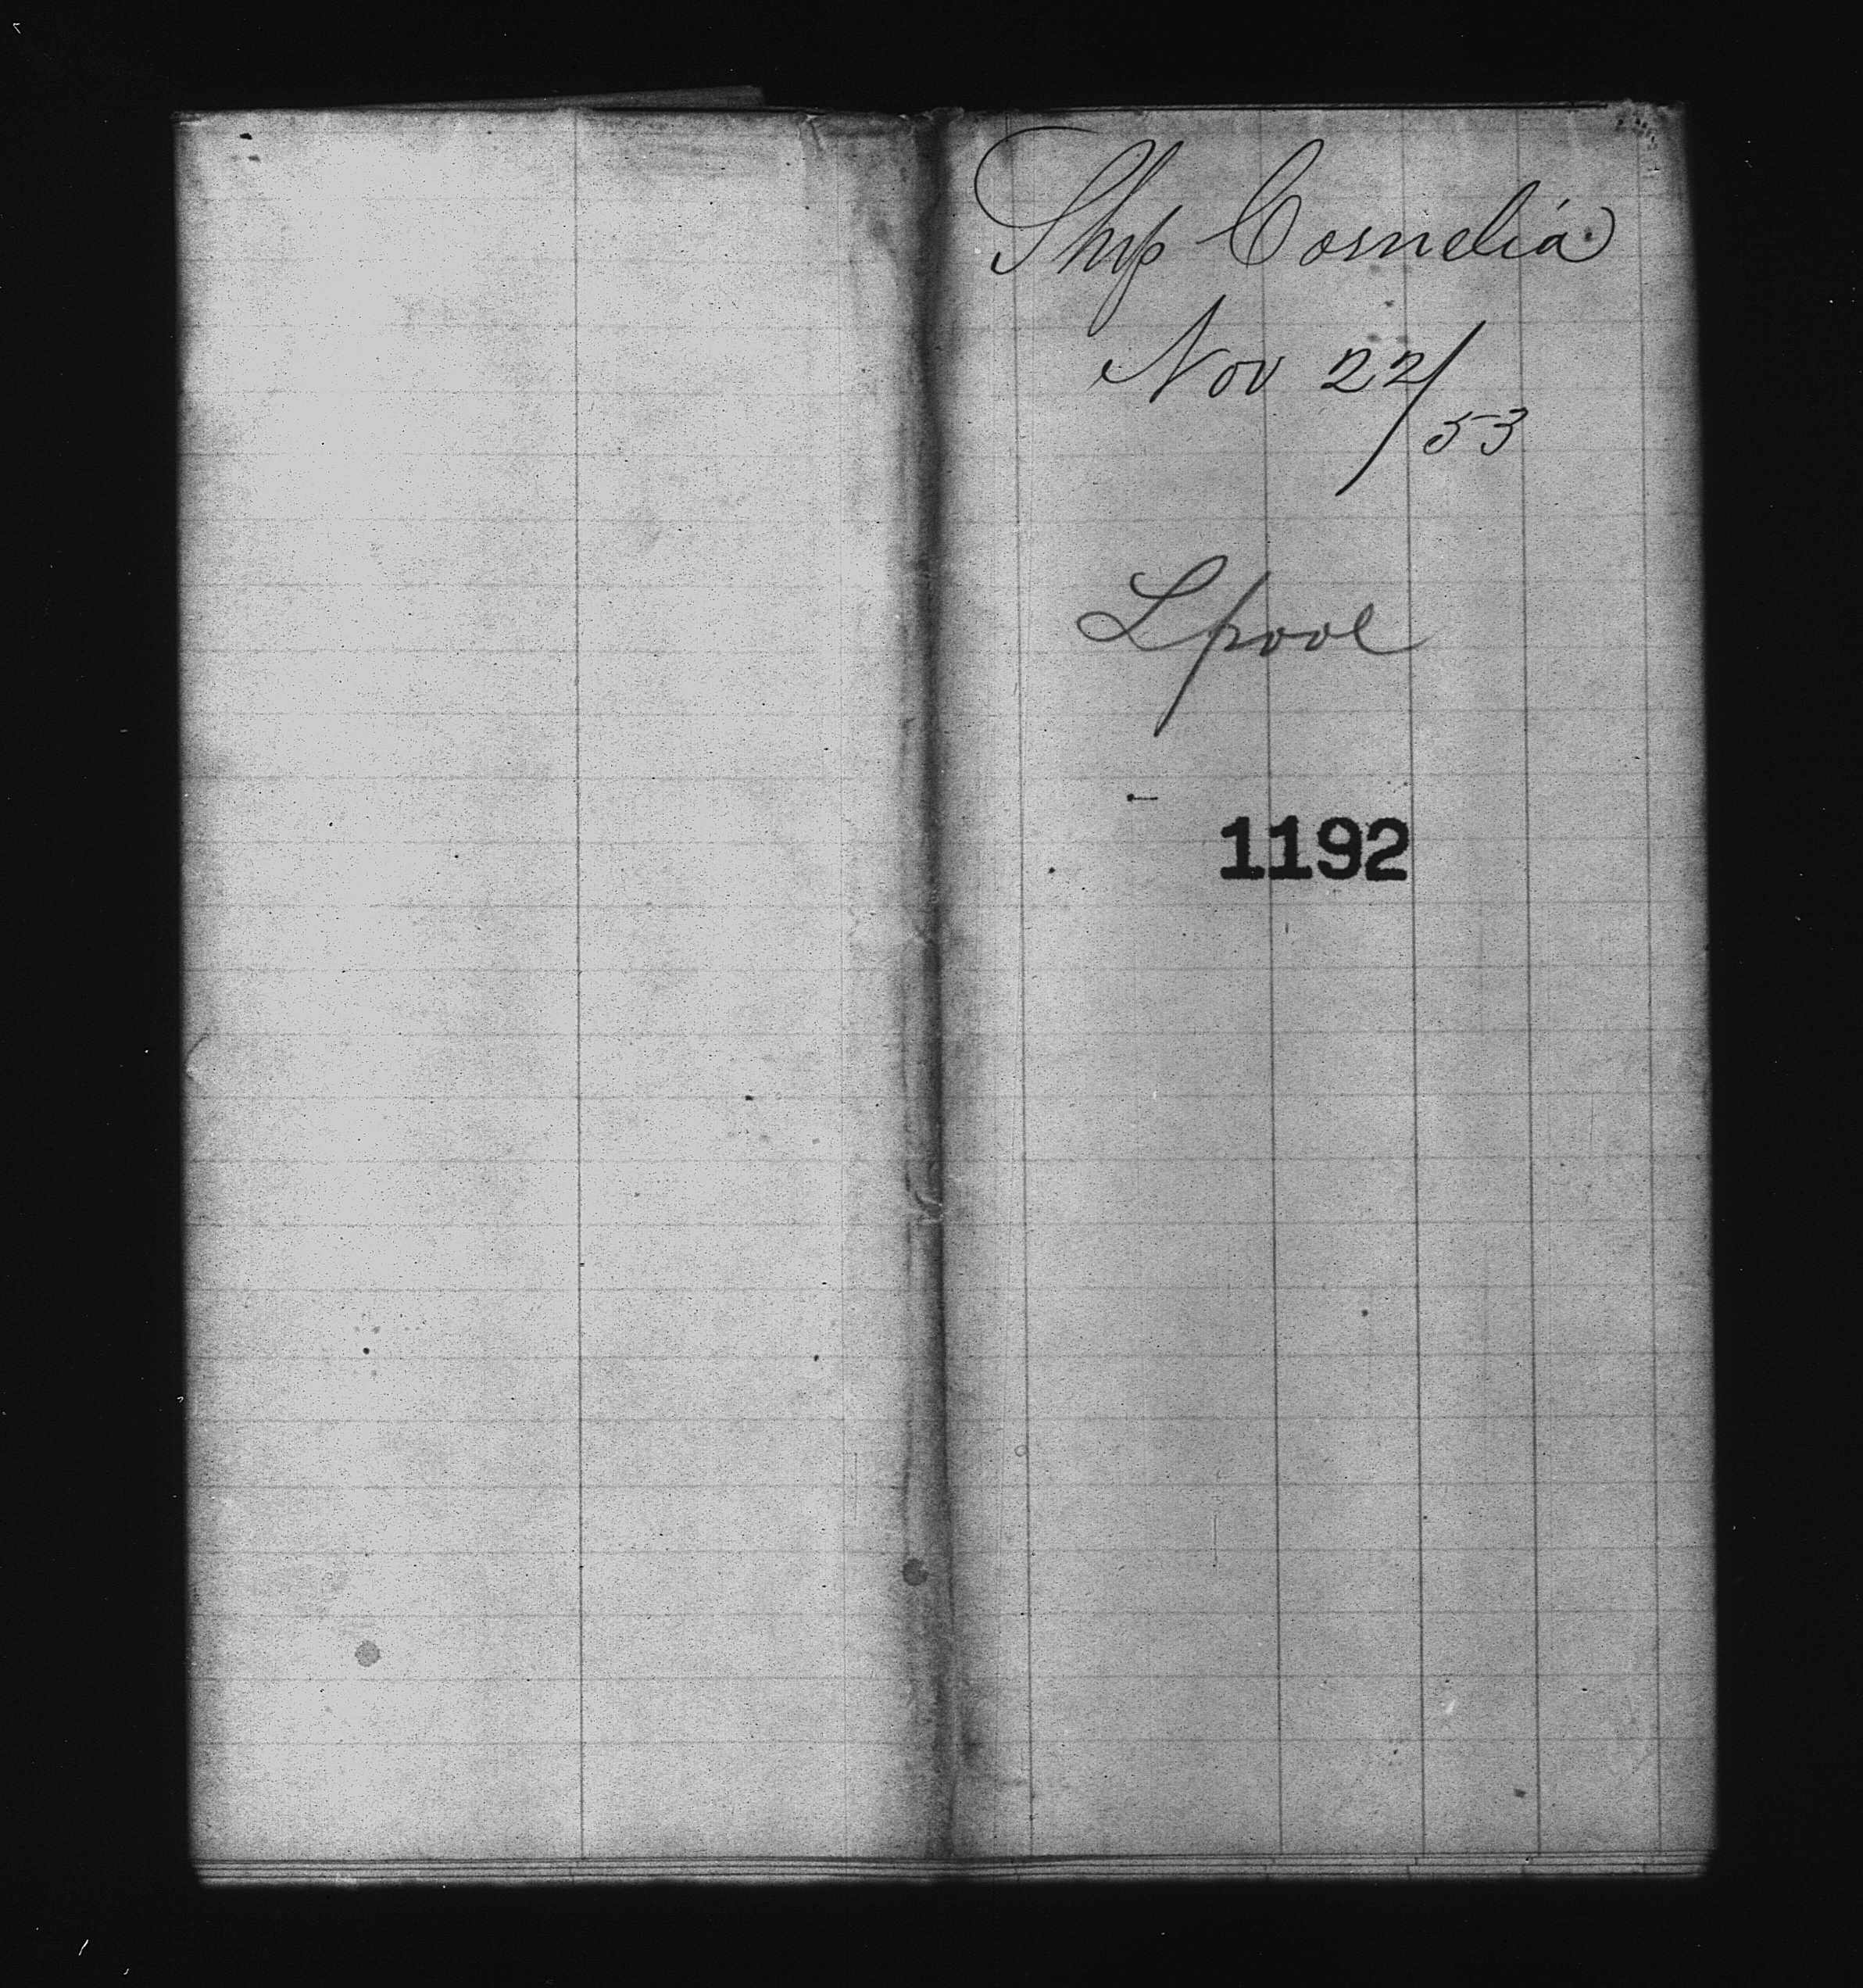 Ship Cornelia
Nov 22/53
Lpool
1192